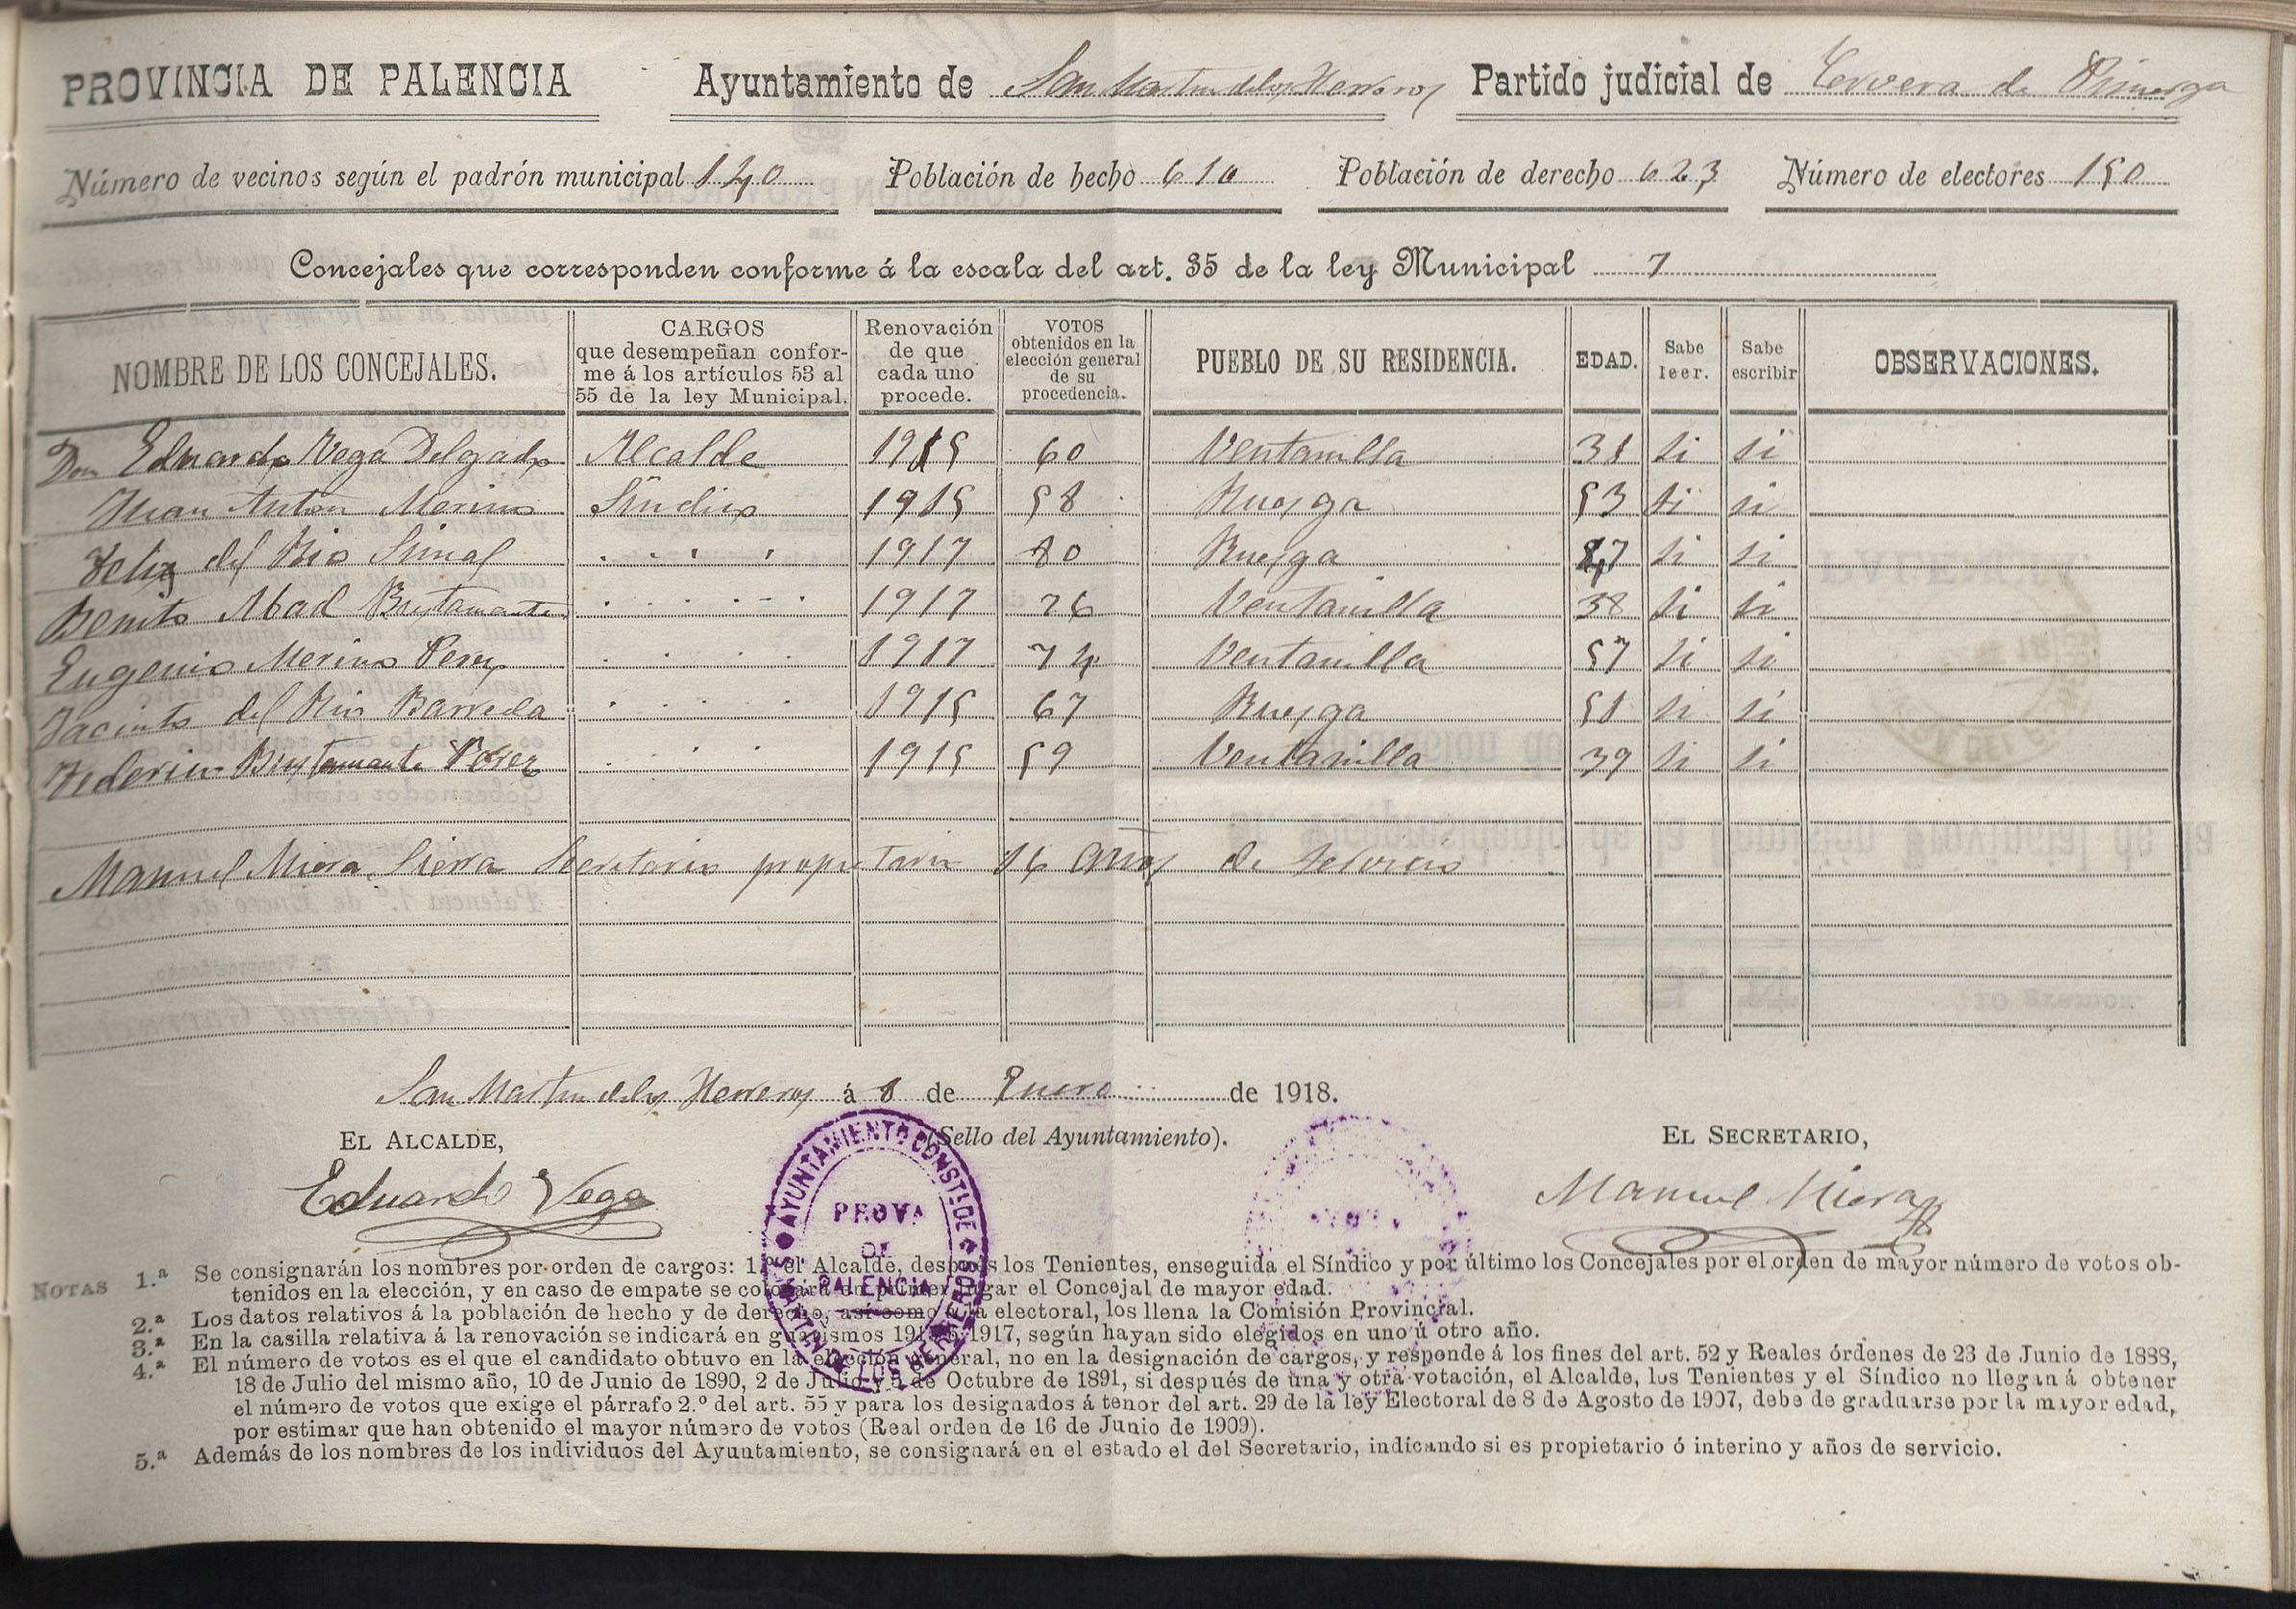 PROVINCIA DE PALENCIA Ayuntamiento de San Martin de los Herreros Partido judicial de Cervera de Pisuerga
Número de vecinos según el padrón municipal 140 Población de hecho 610 Población de derecho 623 Número de electores 150
Concejales que corresponden conforme á la escala del art. 35 de la ley Municipal 7
NOMBRE DE LOS CONCEJALES. CARGOS que desempeñan conforme á los artículos 53 al 55 de la ley Municipal. Renovación de que cada uno procede. VOTOS obtenidos en la elección general de su procedencia. PUEBLO DE SU RESIDENCIA. EDAD. Sabe leer. Sabe escribir OBSERVACIONES.
Don Eduardo Vega Delgado Alcalde 1915 60 Ventanilla 31 si si
Juan Antón Merino Síndico 1915 58 Ruesga 53 si si
Felix del Rio Simal 1917 80 Ruesga 47 si si
Benito Abad Bustamante 1917 76 Ventanilla 38 si si
Eugenio Merino Perez 1917 74 Ventanilla 57 si si
Jacinto del Rio Barreda 1915 67 Ruesga 51 si si
Federico Bustamante Perez 1915 59 Ventanilla 39 si si
Manuel Miera Sierra Secretario propietario 16 años de servicio
San Martin de los Herreros á 8 de Enero de 1918.
EL ALCALDE, (Sello del Ayuntamiento). EL SECRETARIO,
Eduardo Vega Manuel Miera
AYUNTAMIENTO CONST. DE S. MARTIN DE LOS HERREROS
PROVA
DE
PALENCIA
NOTAS 1.ª Se consignarán los nombres por orden de cargos: 1.º el Alcalde, después los Tenientes, enseguida el Síndico y por último los Concejales por el orden de mayor número de votos ob-
tenidos en la elección, y en caso de empate se colocará en primer lugar el Concejal de mayor edad.
2.ª Los datos relativos á la población de hecho y de derecho, así como á la electoral, los llena la Comisión Provincial.
3.ª En la casilla relativa á la renovación se indicará en guarismos 1915 ó 1917, según hayan sido elegidos en uno ú otro año.
4.ª El número de votos es el que el candidato obtuvo en la elección general, no en la designación de cargos, y responde á los fines del art. 52 y Reales órdenes de 23 de Junio de 1888,
18 de Julio del mismo año, 10 de Junio de 1890, 2 de Julio y 5 de Octubre de 1891, si después de una y otra votación, el Alcalde, los Tenientes y el Síndico no llegan á obtener
el número de votos que exige el párrafo 2.º del art. 55 y para los designados á tenor del art. 29 de la ley Electoral de 8 de Agosto de 1907, debe de graduarse por la mayor edad,
por estimar que han obtenido el mayor número de votos (Real orden de 16 de Junio de 1909).
5.ª Además de los nombres de los individuos del Ayuntamiento, se consignará en el estado el del Secretario, indicando si es propietario ó interino y años de servicio.